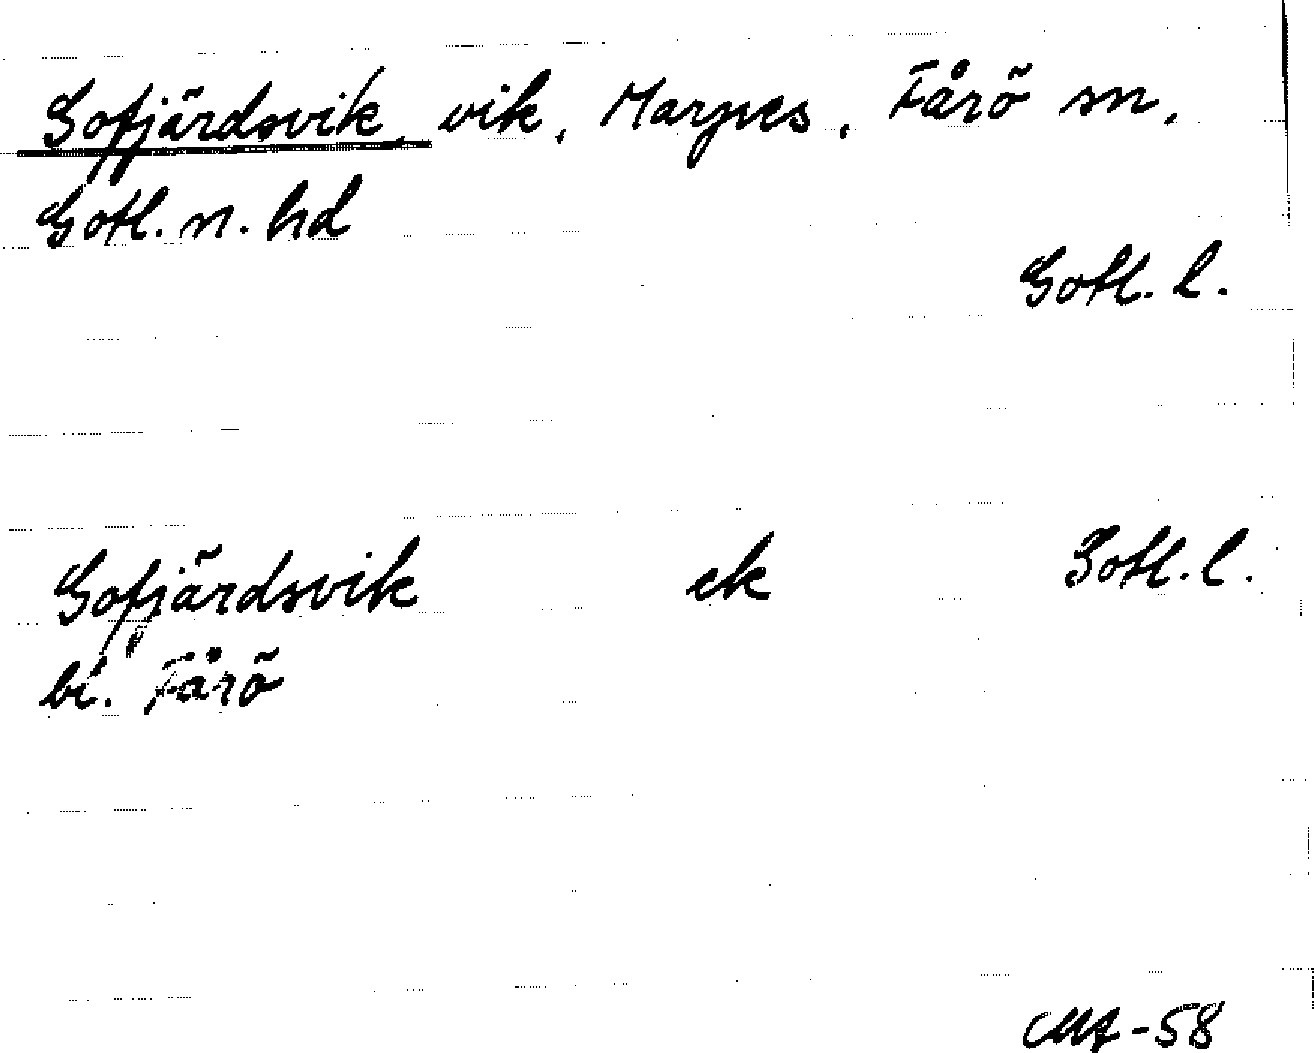 Gofjärdsvik, vik, Marpes, Fårö sn,
Gotl. n. hd
Gotl. l.
Gofjärdsvik ek Gotl. l.
bi. Fårö
-58